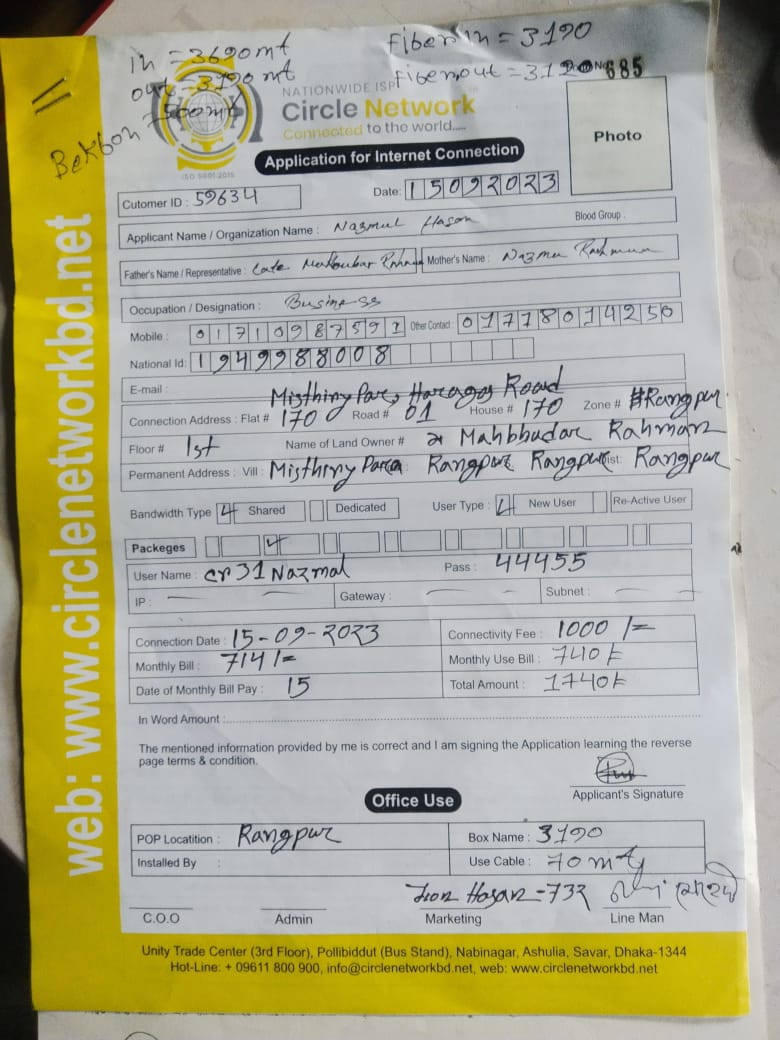 In = 3690 mt
Fiber In = 3190
out = 3190 mt
Fiber out = 3190
No 685
Bekbon 7500mt
NATIONWIDE ISP
Circle Network
Connected to the world.....
ISO 9001:2015
Application for Internet Connection
Photo
Cutomer ID : 59634
Date: 15092023
Applicant Name / Organization Name : Nazmul Hasan
Blood Group :
Father's Name / Representative : Late
Mother's Name : Nazma
Occupation / Designation : Business
Mobile : 01710987591
Other Contact : 01778014250
National Id: 1949988008
E-mail :
Misthiry Para, Haragas Road
Connection Address : Flat # 170 Road # 01 House # 170 Zone # Rangpur
Floor # 1st Name of Land Owner # Mahbbudar Rahman
Permanent Address : Vill : Misthiry Para Rangpur Rangpur Dist: Rangpur
Bandwidth Type Shared Dedicated User Type : New User Re-Active User
Packeges
User Name : cr31Nazmal Pass : 44455
IP : Gateway : Subnet :
Connection Date : 15-09-2023 Connectivity Fee : 1000 /=
Monthly Bill : 714 /= Monthly Use Bill : 740 /=
Date of Monthly Bill Pay : 15 Total Amount : 1740 /=
In Word Amount :
The mentioned information provided by me is correct and I am signing the Application learning the reverse
page terms & condition.
Applicant's Signature
Office Use
POP Locatition : Rangpur Box Name : 3190
Installed By : Use Cable : 70 mt
Hasan-732
C.O.O Admin Marketing Line Man
Unity Trade Center (3rd Floor), Pollibiddut (Bus Stand), Nabinagar, Ashulia, Savar, Dhaka-1344
Hot-Line: + 09611 800 900, info@circlenetworkbd.net, web: www.circlenetworkbd.net
web: www.circlenetworkbd.net